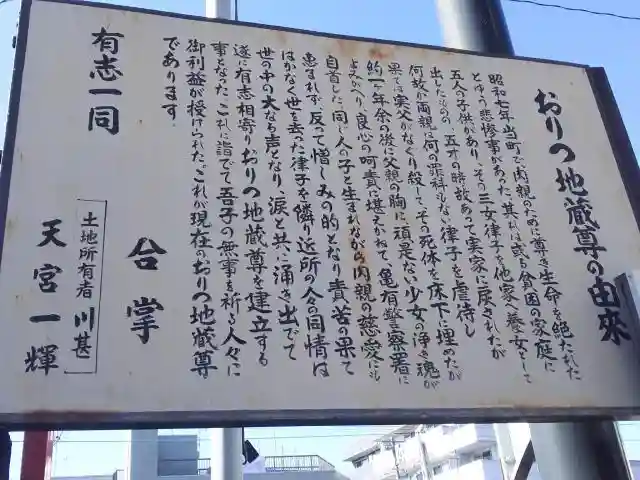 おりつ地蔵尊の由來
昭和七年当町で肉親のために尊き生命を絶たれた
とゆう悲惨事があった、其れは或る貧困の家庭に
五人の子供があり、その三女律子を他家へ養女として
出したものの、五才の時故あって実家に戻されたが
何故か両親は何の罪科もない律子を虐待し
果ては実父がなぐり殺して、その死体を床下に埋めたが
約一年余の後に父親の胸に頑是ない少女の浄き魂が
よみがへり、良心の呵責に堪えかねて、亀有警察署に
自首した、同じ人の子と生まれながら肉親の慈愛にも
恵まれず、反って憎しみの的となり責苦の果て
はかなく世を去った律子を憐り近所の人の同情は
世の中の大なる声となり、涙と共に涌き出でて
遂に有志相寄りおりつ地蔵尊を建立する
事となった、これに詣でて吾子の無事を祈る人々に
御利益が授けられた、これが現在のおりつ地蔵尊
であります。
合掌
有志一同
土地所有者 川甚
天宮一輝